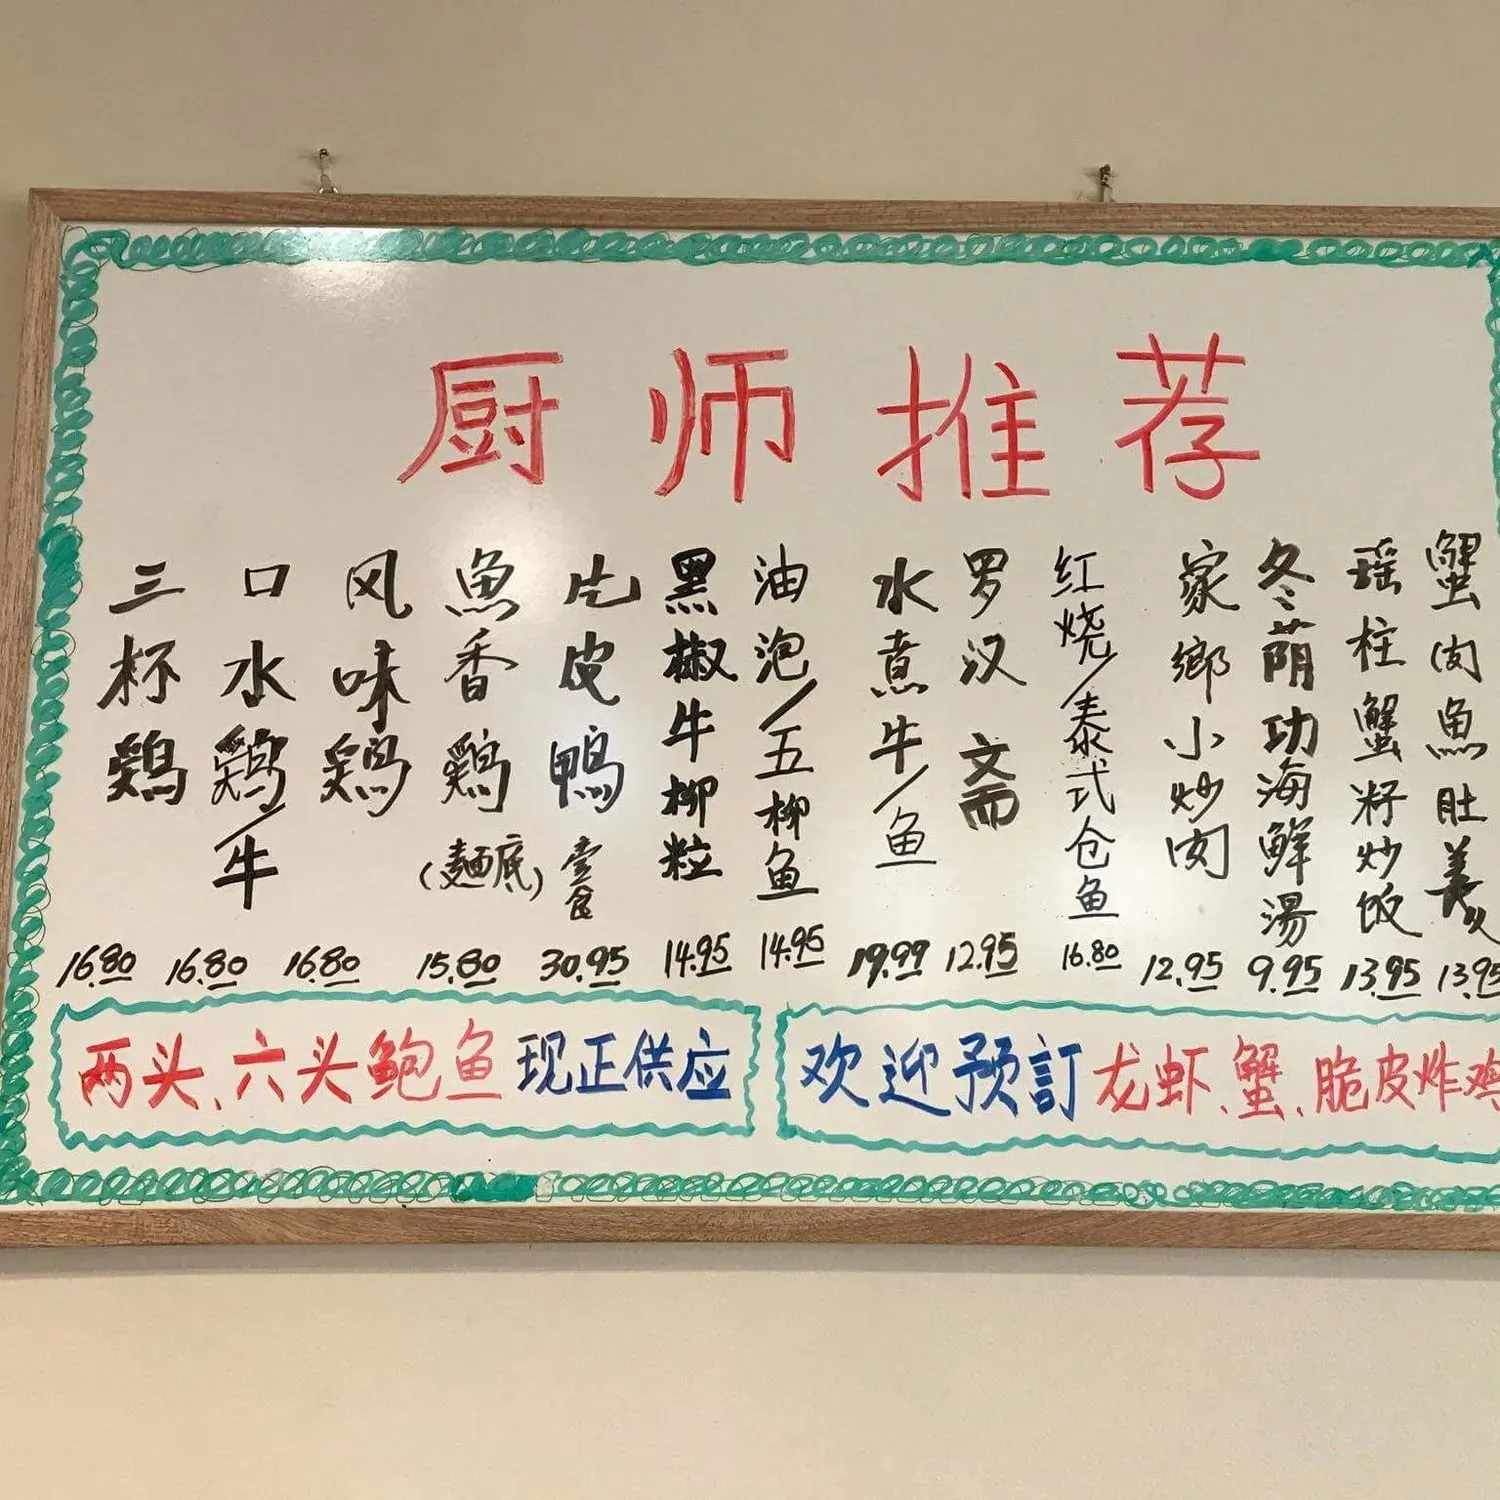 厨师推荐
三杯鷄 16.80
口水鷄/牛 16.80
风味鷄 16.80
魚香鷄(麵底) 15.80
片皮鴨 30.95
黑椒牛柳粒 14.95
油泡/五柳鱼 14.95
水煮牛/鱼 19.99
罗汉斋 12.95
红烧/泰式仓鱼 16.80
家鄉小炒肉 12.95
冬荫功海鲜湯 9.95
瑶柱蟹籽炒饭 13.95
蟹肉魚肚羹 13.95
两头、六头鲍鱼现正供应
欢迎预訂龙虾、蟹、脆皮炸鸡